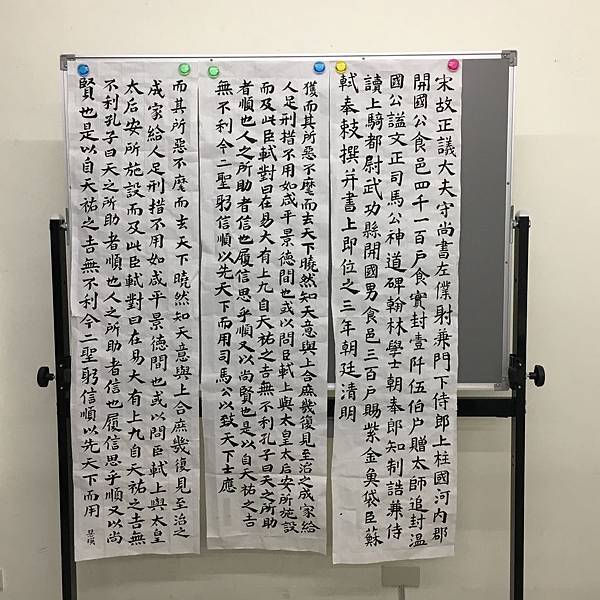 宋故正議大夫守尚書左僕射兼門下侍郎上柱國河內郡
開國公食邑四千一百戶食實封壹阡伍伯戶贈太師追封溫
國公謚文正司馬公神道碑翰林學士朝奉郎知制誥兼侍
讀上騎都尉武功縣開國男食邑三百戶賜紫金魚袋臣蘇
軾奉敕撰并書上即位之三年朝廷清明
獲而其所惡不麾而去天下曉然知天意與上合庶幾復見至治之成家給
人足刑措不用如咸平景德間也或以問臣軾上與太皇太后安所施設
而及此臣軾對曰在易大有上九自天祐之吉無不利孔子曰天之所助
者順也人之所助者信也履信思乎順又以尚賢也是以自天祐之吉
無不利今二聖躬信順以先天下而用司馬公以致天下士應
而其所惡不麾而去天下曉然知天意與上合庶幾復見至治之
成家給人足刑措不用如咸平景德間也或以問臣軾上與太皇
太后安所施設而及此臣軾對曰在易大有上九自天祐之吉無
不利孔子曰天之所助者順也人之所助者信也履信思乎順又以尚
賢也是以自天祐之吉無不利今二聖躬信順以先天下而用